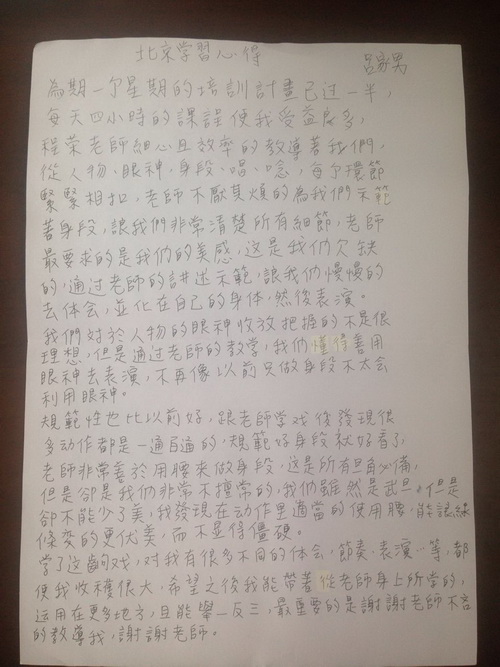 北京学習心得
呂家男
為期一个星期的培訓計畫已过一半，
每天四小時的課程使我受益良多，
程荣老師細心且效率的教導著我們，
從人物、眼神、身段、唱、唸，每个環節
緊緊相扣，老師不厭其煩的為我們示範
著身段，讓我們非常清楚所有細節，老師
最要求的是我们的美感，这是我们欠缺
的，通过老師的讲述示範，讓我们慢慢的
去体会，並化在自己的身体，然後表演。
我們对於人物的眼神收放把握的不是很
理想，但是通过老師的教学，我们懂得善用
眼神去表演，不再像以前只做身段不太会
利用眼神。
規範性也比以前好，跟老師学戏後發現很
多动作都是一通百通的，規範好身段就好看了，
老師非常善於用腰來做身段，这是所有旦角必備，
但是卻是我们非常不擅常的，我们雖然是武旦，但是
卻不能少了美，我發現在动作里適當的使用腰，能讓線
條变的更优美，而不显得僵硬。
学了这齣戏，对我有很多不同的体会，節奏、表演…等，都
使我收穫很大，希望之後我能帶著從老師身上所学的，
运用在更多地方，且能舉一反三，最重要的是謝謝老師不吝
的教導我，謝謝老師。